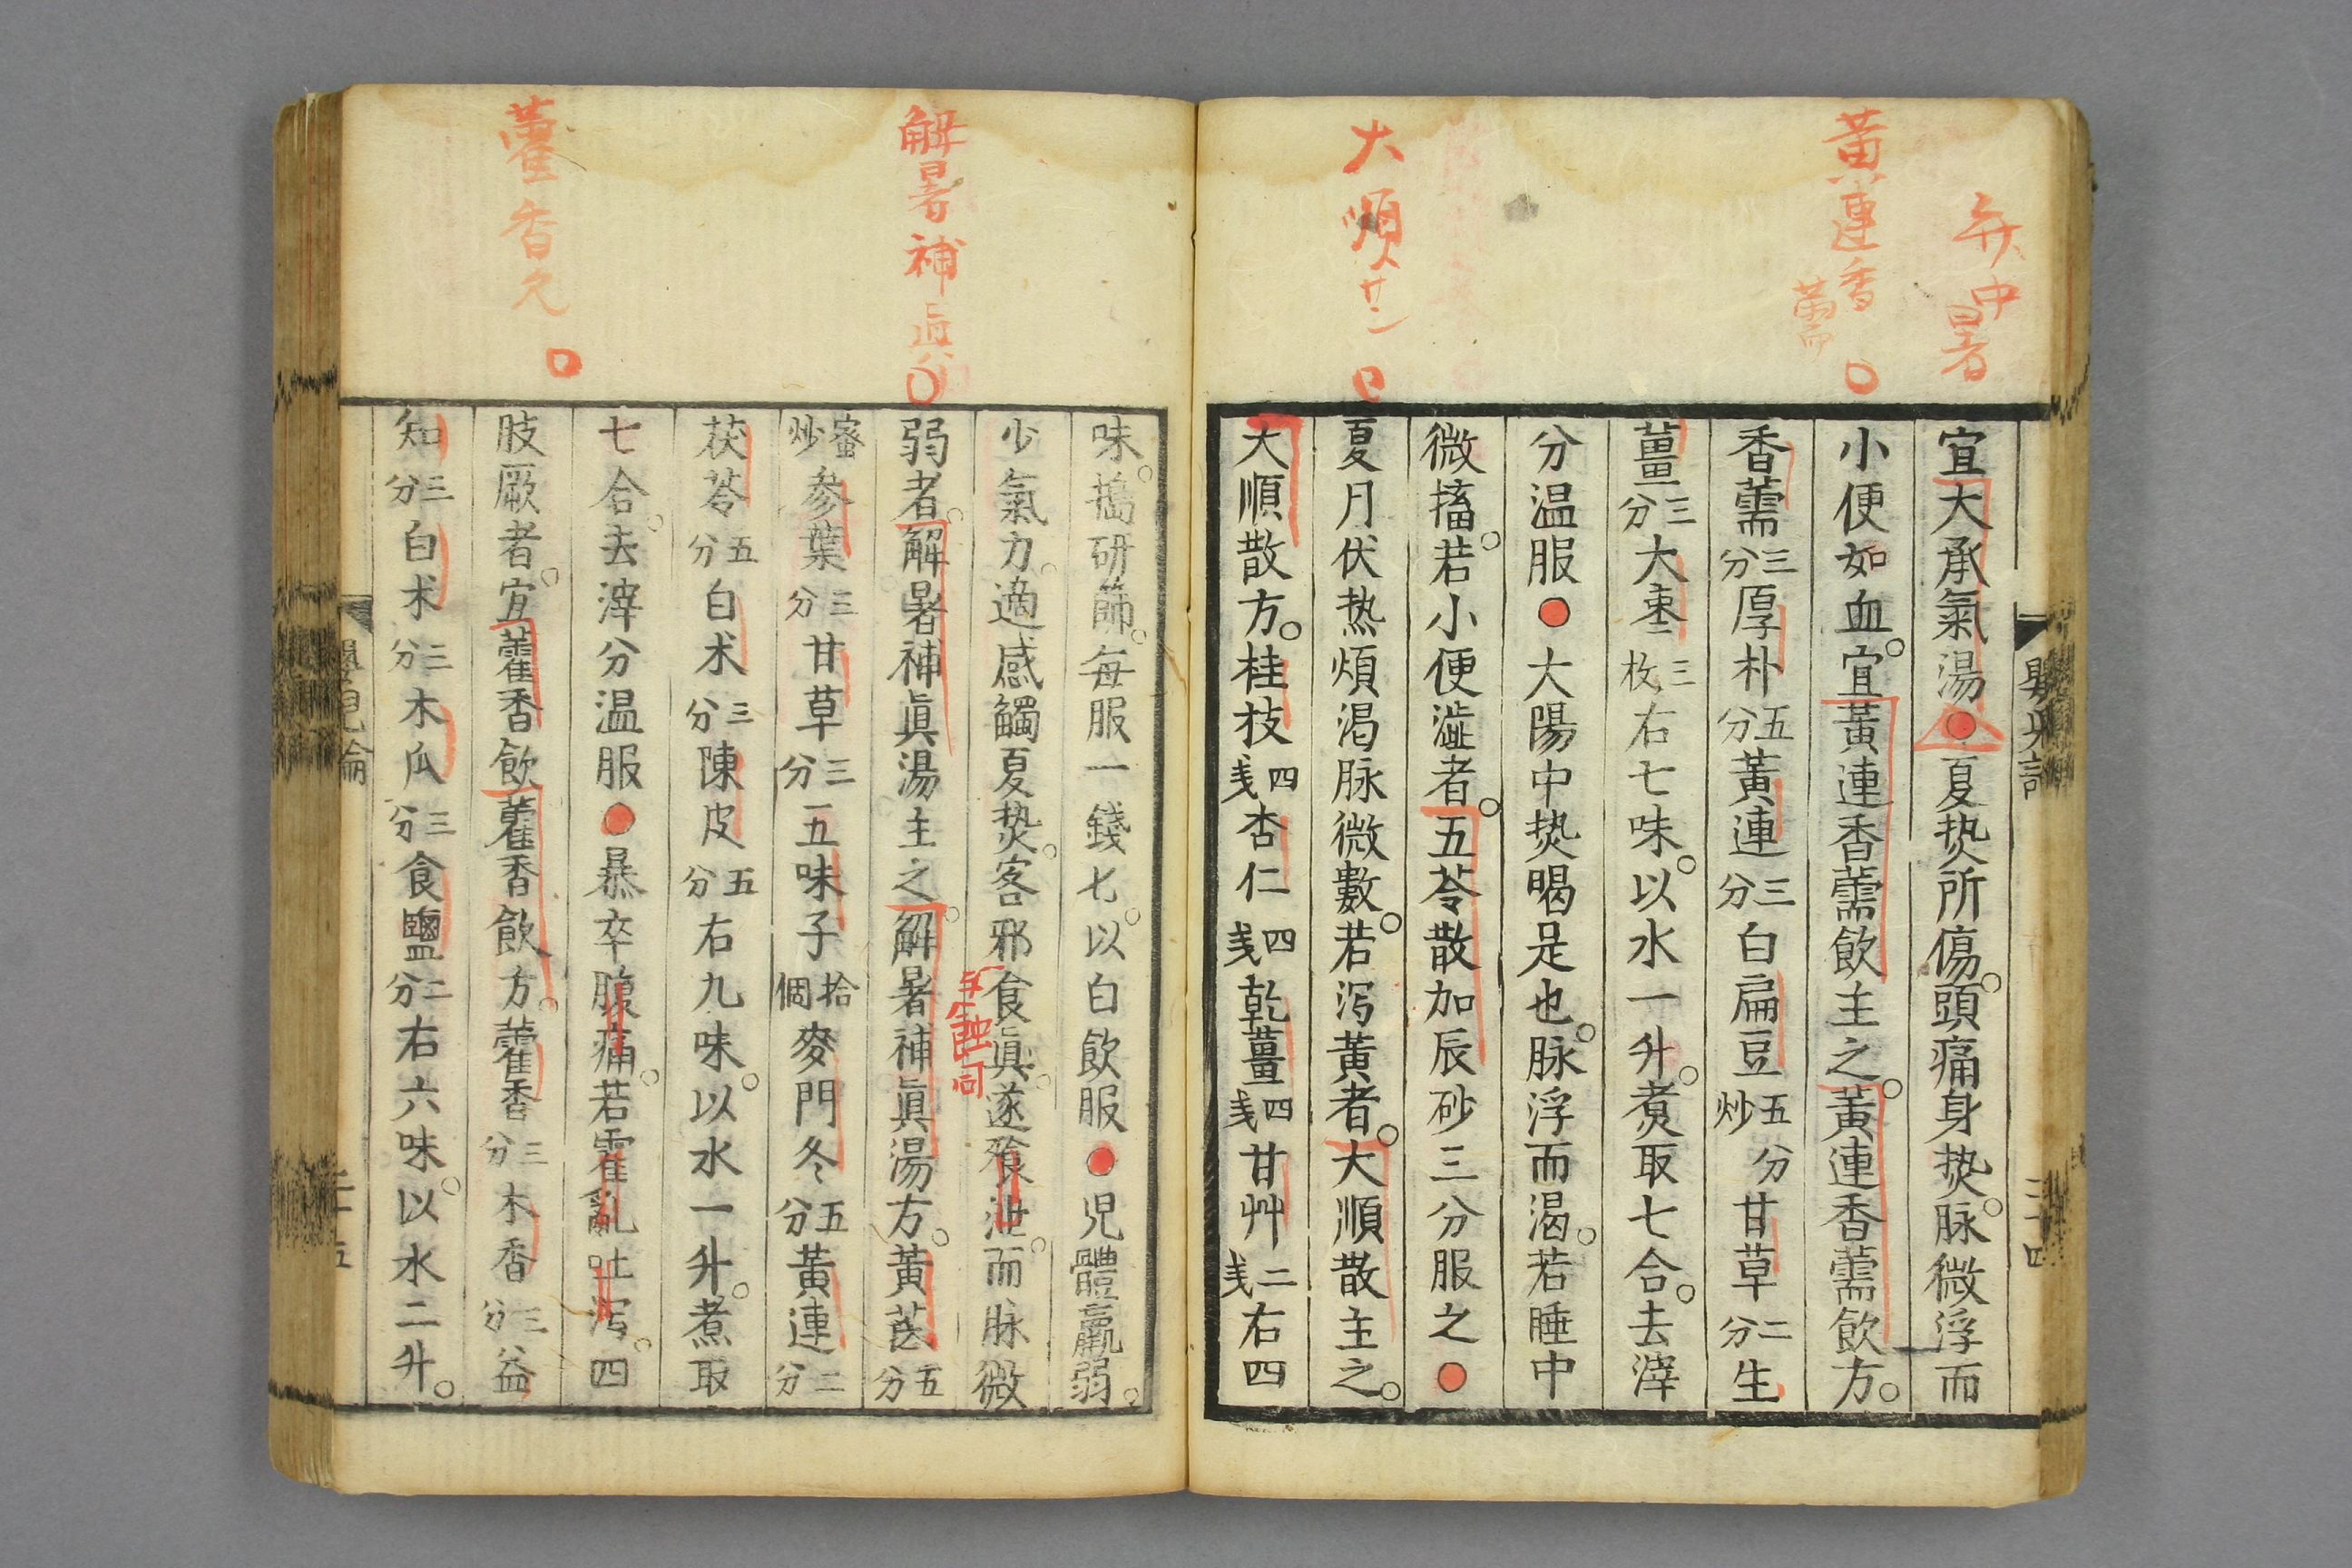 黃連香薷
中暑
大順散
宜大承氣湯●夏𤍠所傷。頭痛身𤍠。脉微浮而
小便如血。宜黃連香薷飲主之。黃連香薷飲方。
香薷三分厚朴五分黃連三分白扁豆五分炒甘草二分生
薑三分大棗三枚右七味。以水一升。煑取七合。去滓
分温服●大陽中𤍠暍是也。脉浮而渴。若睡中
微搐。若小便澁者。五苓散加辰砂三分服之●
夏月伏热煩渴脉微數。若瀉黃者。大順散主之。
大順散方。桂枝四戔杏仁四戔乾薑四戔甘艸二戔右四
三十四
解暑補眞
藿香
味。搗研篩。每服一錢匕。以白飲服●児體羸弱。
少氣力。適感觸夏𤍠。客邪食眞。遂飱泄。而脉微
蝕同
弱者。解暑補眞湯主之。解暑補眞湯方。黃芪五分
蜜炒參葉三分甘草三分五味子拾個麥門冬五分黃連二分
茯苓五分白朮三分陳皮五分右九味。以水一升。煮取
七合。去滓分温服●暴卒腹痛。若霍亂吐瀉。四
肢厥者。宜藿香飲。藿香飲方。藿香三分木香三分益
知三分白朮三分木瓜三分食鹽二分右六味。以水二升。